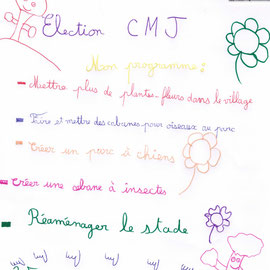 Election CMJ
Mon programme :
- Mettre plus de plantes-fleurs dans le village
- Faire et mettre des cabanes pour oiseaux au parc
- Créer un parc à chiens
- Créer une cabane à insectes
- Réaménager le stade